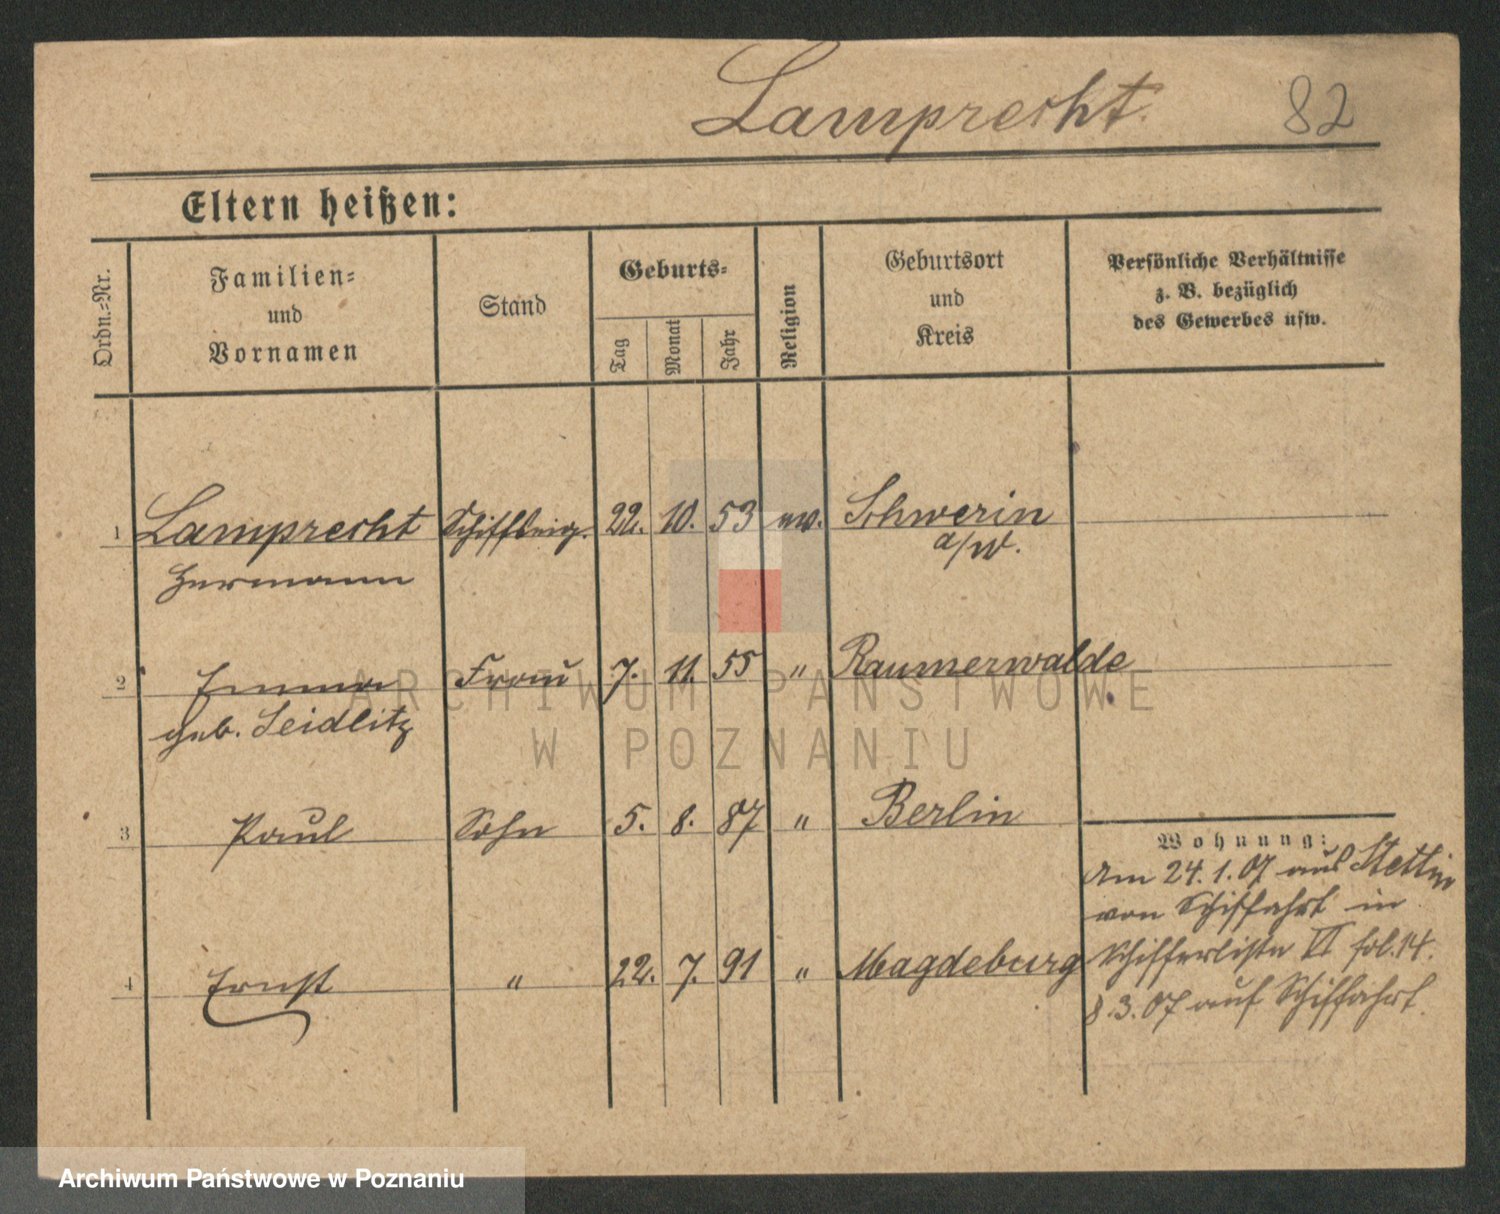 Lamprecht.
82
Eltern heißen:
Ordn.-Nr.
Familien-
und
Vornamen
Stand
Geburts-
Tag
Monat
Jahr
Religion
Geburtsort
und
Kreis
Persönliche Verhältnisse
z. B. bezüglich
des Gewerbes usw.
1 Lamprecht Schiffseig. 22. 10. 53 ev. Schwerin
a/W.
Hermann
2 Emma Frau 7. 11. 55 " Raumerwalde
geb. Seidlitz
3 Paul Sohn 5. 8. 87 " Berlin
Wohnung:
Am 24.1.07 aus Stettin
von Schiffahrt in
Schifferliste VI fol. 14.
4 Ernst " 22. 7. 91 " Magdeburg
8.3.07 auf Schiffahrt.
ARCHIWUM PAŃSTWOWE
W POZNANIU
Archiwum Państwowe w Poznaniu